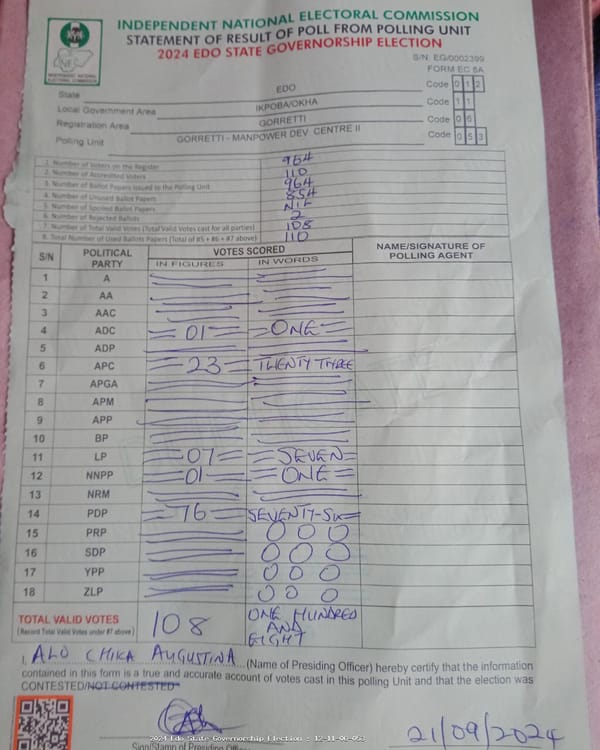 INDEPENDENT NATIONAL ELECTORAL COMMISSION
STATEMENT OF RESULT OF POLL FROM POLLING UNIT
2024 EDO STATE GOVERNORSHIP ELECTION
S/N: EG/0002399
FORM EC 8A
INEC
INDEPENDENT NATIONAL ELECTORAL COMMISSION
State EDO Code 0 1 2
Local Government Area IKPOBA/OKHA Code 1 1
Registration Area GORRETTI Code 0 6
Polling Unit GORRETTI - MANPOWER DEV CENTRE II Code 0 5 3
1. Number of Voters on the Register 964
2. Number of Accredited Voters 110
3. Number of Ballot Papers Issued to the Polling Unit 964
4. Number of Unused Ballot Papers 854
5. Number of Spoiled Ballot Papers NIL
6. Number of Rejected Ballots 2
7. Number of Total Valid Votes (Total Valid Votes cast for all parties) 108
8. Total Number of Used Ballots Papers (Total of #5 + #6 + #7 above) 110
S/N POLITICAL PARTY VOTES SCORED NAME/SIGNATURE OF POLLING AGENT
IN FIGURES IN WORDS
1 A
2 AA
3 AAC
4 ADC 01 ONE
5 ADP
6 APC 23 TWENTY THREE
7 APGA
8 APM
9 APP
10 BP
11 LP 07 SEVEN
12 NNPP 01 ONE
13 NRM
14 PDP 76 SEVENTY-SIX
15 PRP 0 0 0
16 SDP 0 0 0
17 YPP 0 0 0
18 ZLP 0 0 0
TOTAL VALID VOTES 108 ONE HUNDRED AND EIGHT
(Record Total Valid Votes under #7 above)
I, ALO CHIKA AUGUSTINA (Name of Presiding Officer) hereby certify that the information
contained in this form is a true and accurate account of votes cast in this polling Unit and that the election was
CONTESTED/NOT CONTESTED
2024 Edo State Governorship Election : 12-11-06-053
21/09/2024
Sign/Stamp of Presiding